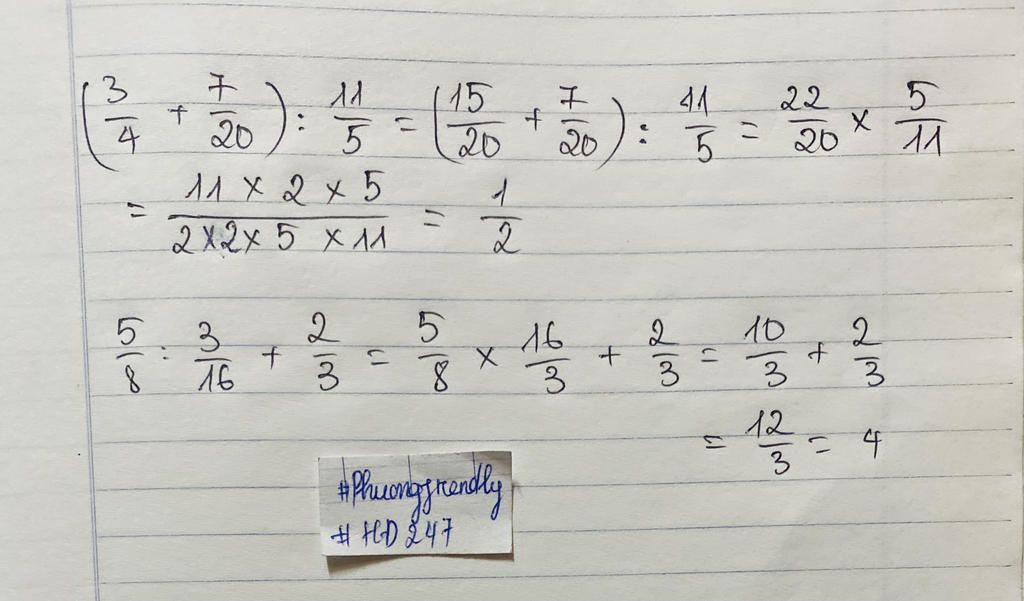 (3/4 + 7/20) : 11/5 = (15/20 + 7/20) : 11/5 = 22/20 × 5/11
= (11 × 2 × 5)/(2 × 2 × 5 × 11) = 1/2
5/8 : 3/16 + 2/3 = 5/8 × 16/3 + 2/3 = 10/3 + 2/3
= 12/3 = 4
#Phuongfrendly
#HD247